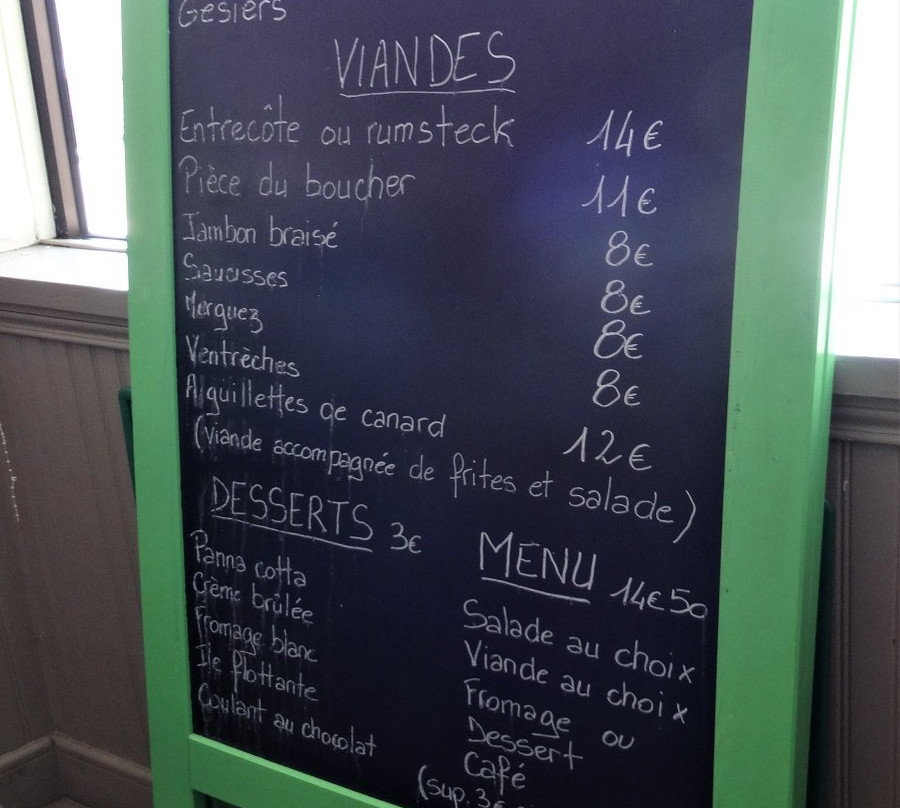 Gésiers
VIANDES
Entrecôte ou rumsteck 14€
Pièce du boucher 11€
Jambon braisé 8€
Saucisses 8€
Merguez 8€
Ventrèches 8€
Aiguillettes de canard 12€
(viande accompagnée de frites et salade)
DESSERTS 3€
Panna cotta
Crème brûlée
Fromage blanc
Ile flottante
Coulant au chocolat
MENU 14€50
Salade au choix
Viande au choix
Fromage ou
Dessert
Café
(sup. 3€